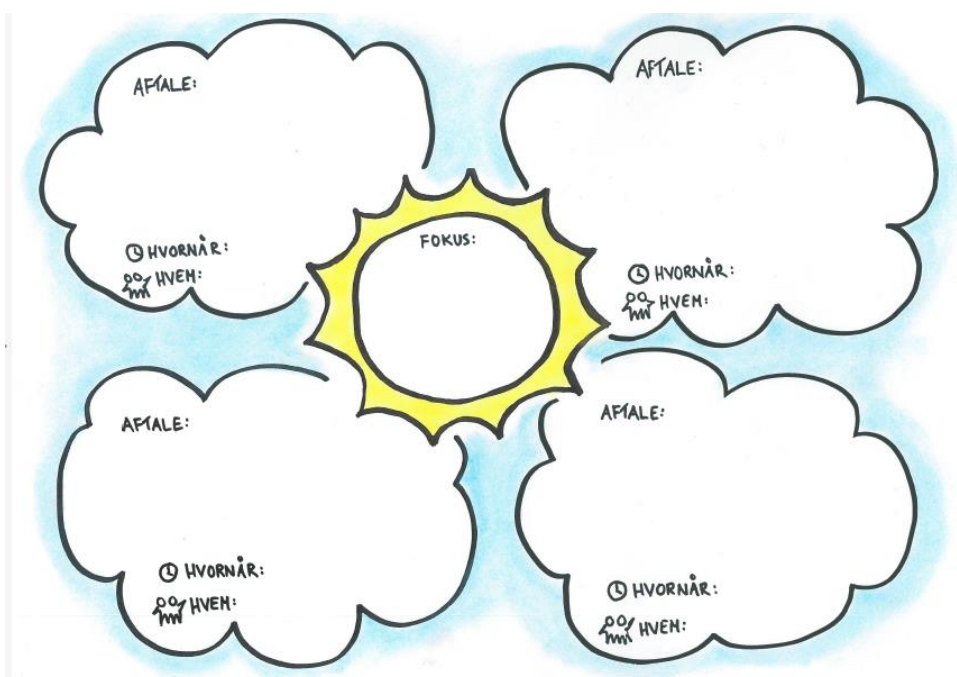 AFTALE:
HVORNÅR:
HVEM:
AFTALE:
HVORNÅR:
HVEM:
FOKUS:
AFTALE:
HVORNÅR:
HVEM:
AFTALE:
HVORNÅR:
HVEM: